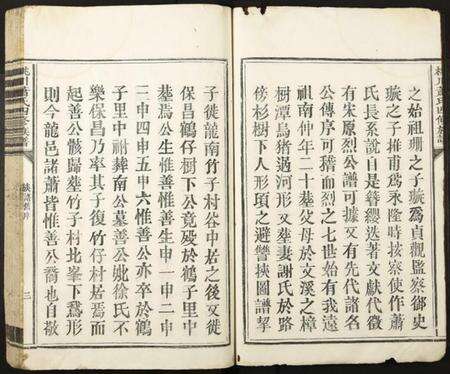 之始祖珊之子虩爲貞觀監察御史
虩之子推甫爲永隆時按察使作蕭
氏長系說自是簪纓迭著文獻代徵
有宋原烈公譜可據又有先代諸名
公傳序可稽而烈之七世始有我遠
祖南仲年二十塟父母於文溪之樟
樹潭烏猪過河形又塟妻謝氏於路
傍杉樹下人形項之避讐挾圖譜挈
子徙龍南竹子村谷中居之後又徙
保昌鶴仔樹下公竟殁於鶴子里中
塟焉公生惟善惟善生申一申二申
三申四申五申六惟善公亦卒於鶴
里中祔葬南公墓善公妣徐氏不
樂保昌乃率其子復竹仔村居焉而
起善公骸歸塟竹子村北峯下鵞形
則今龍邑諸蕭皆惟善公裔也自敬
三